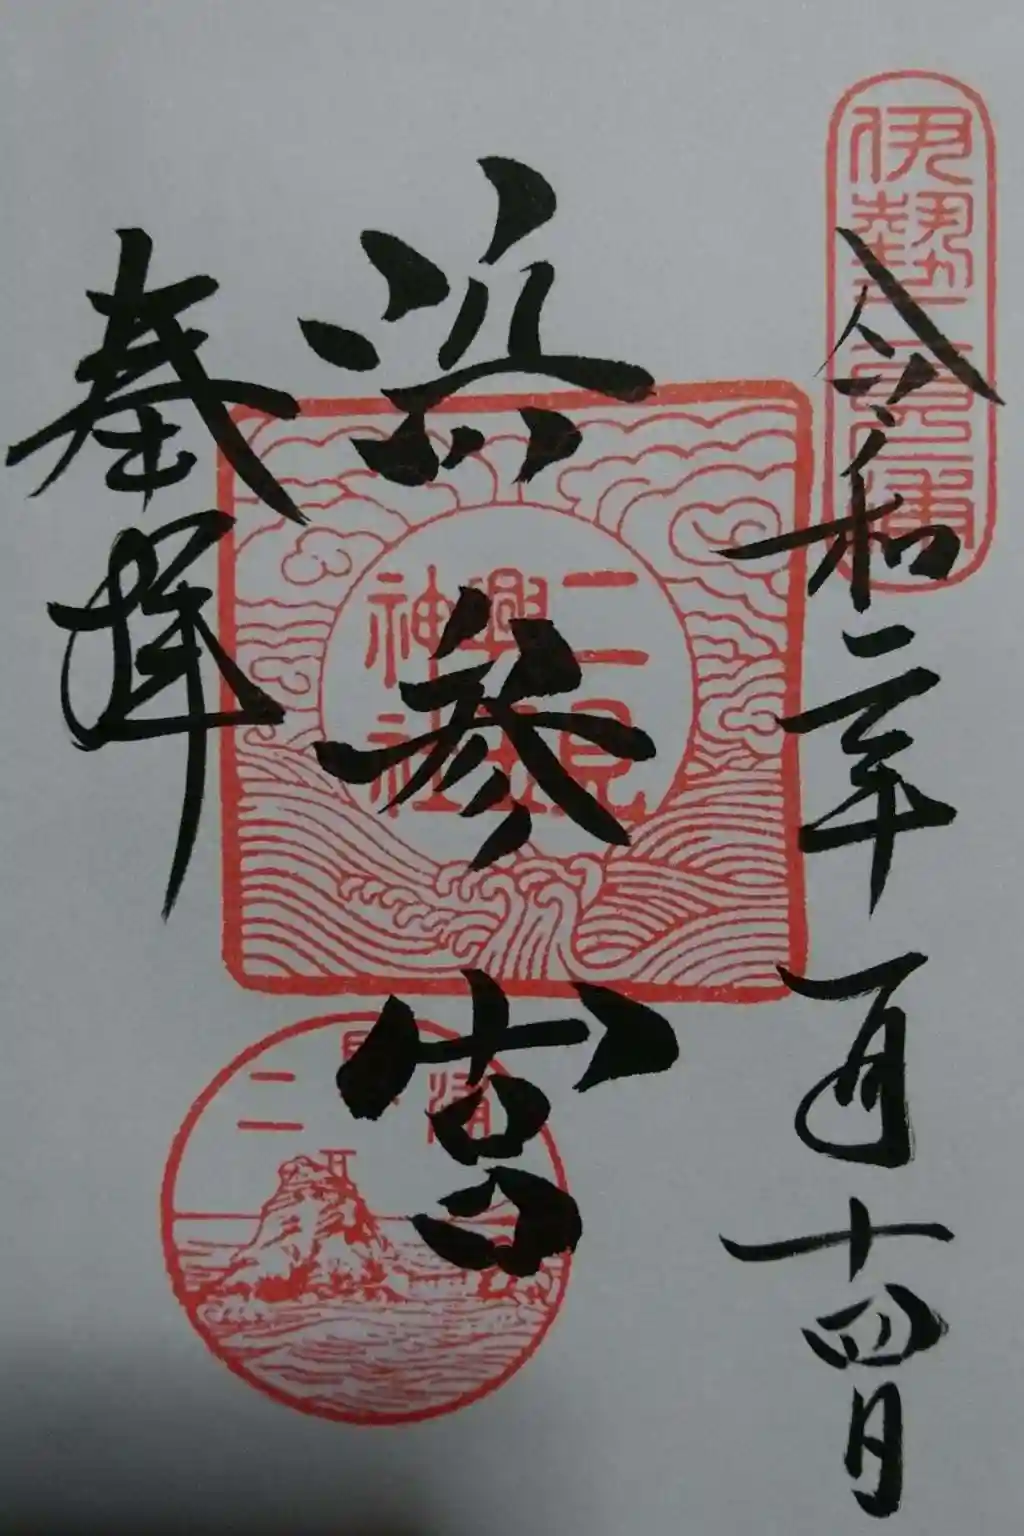 伊勢二見浦
令和二年一月十四日
浜参宮
二見興玉神社
二見浦
奉拝